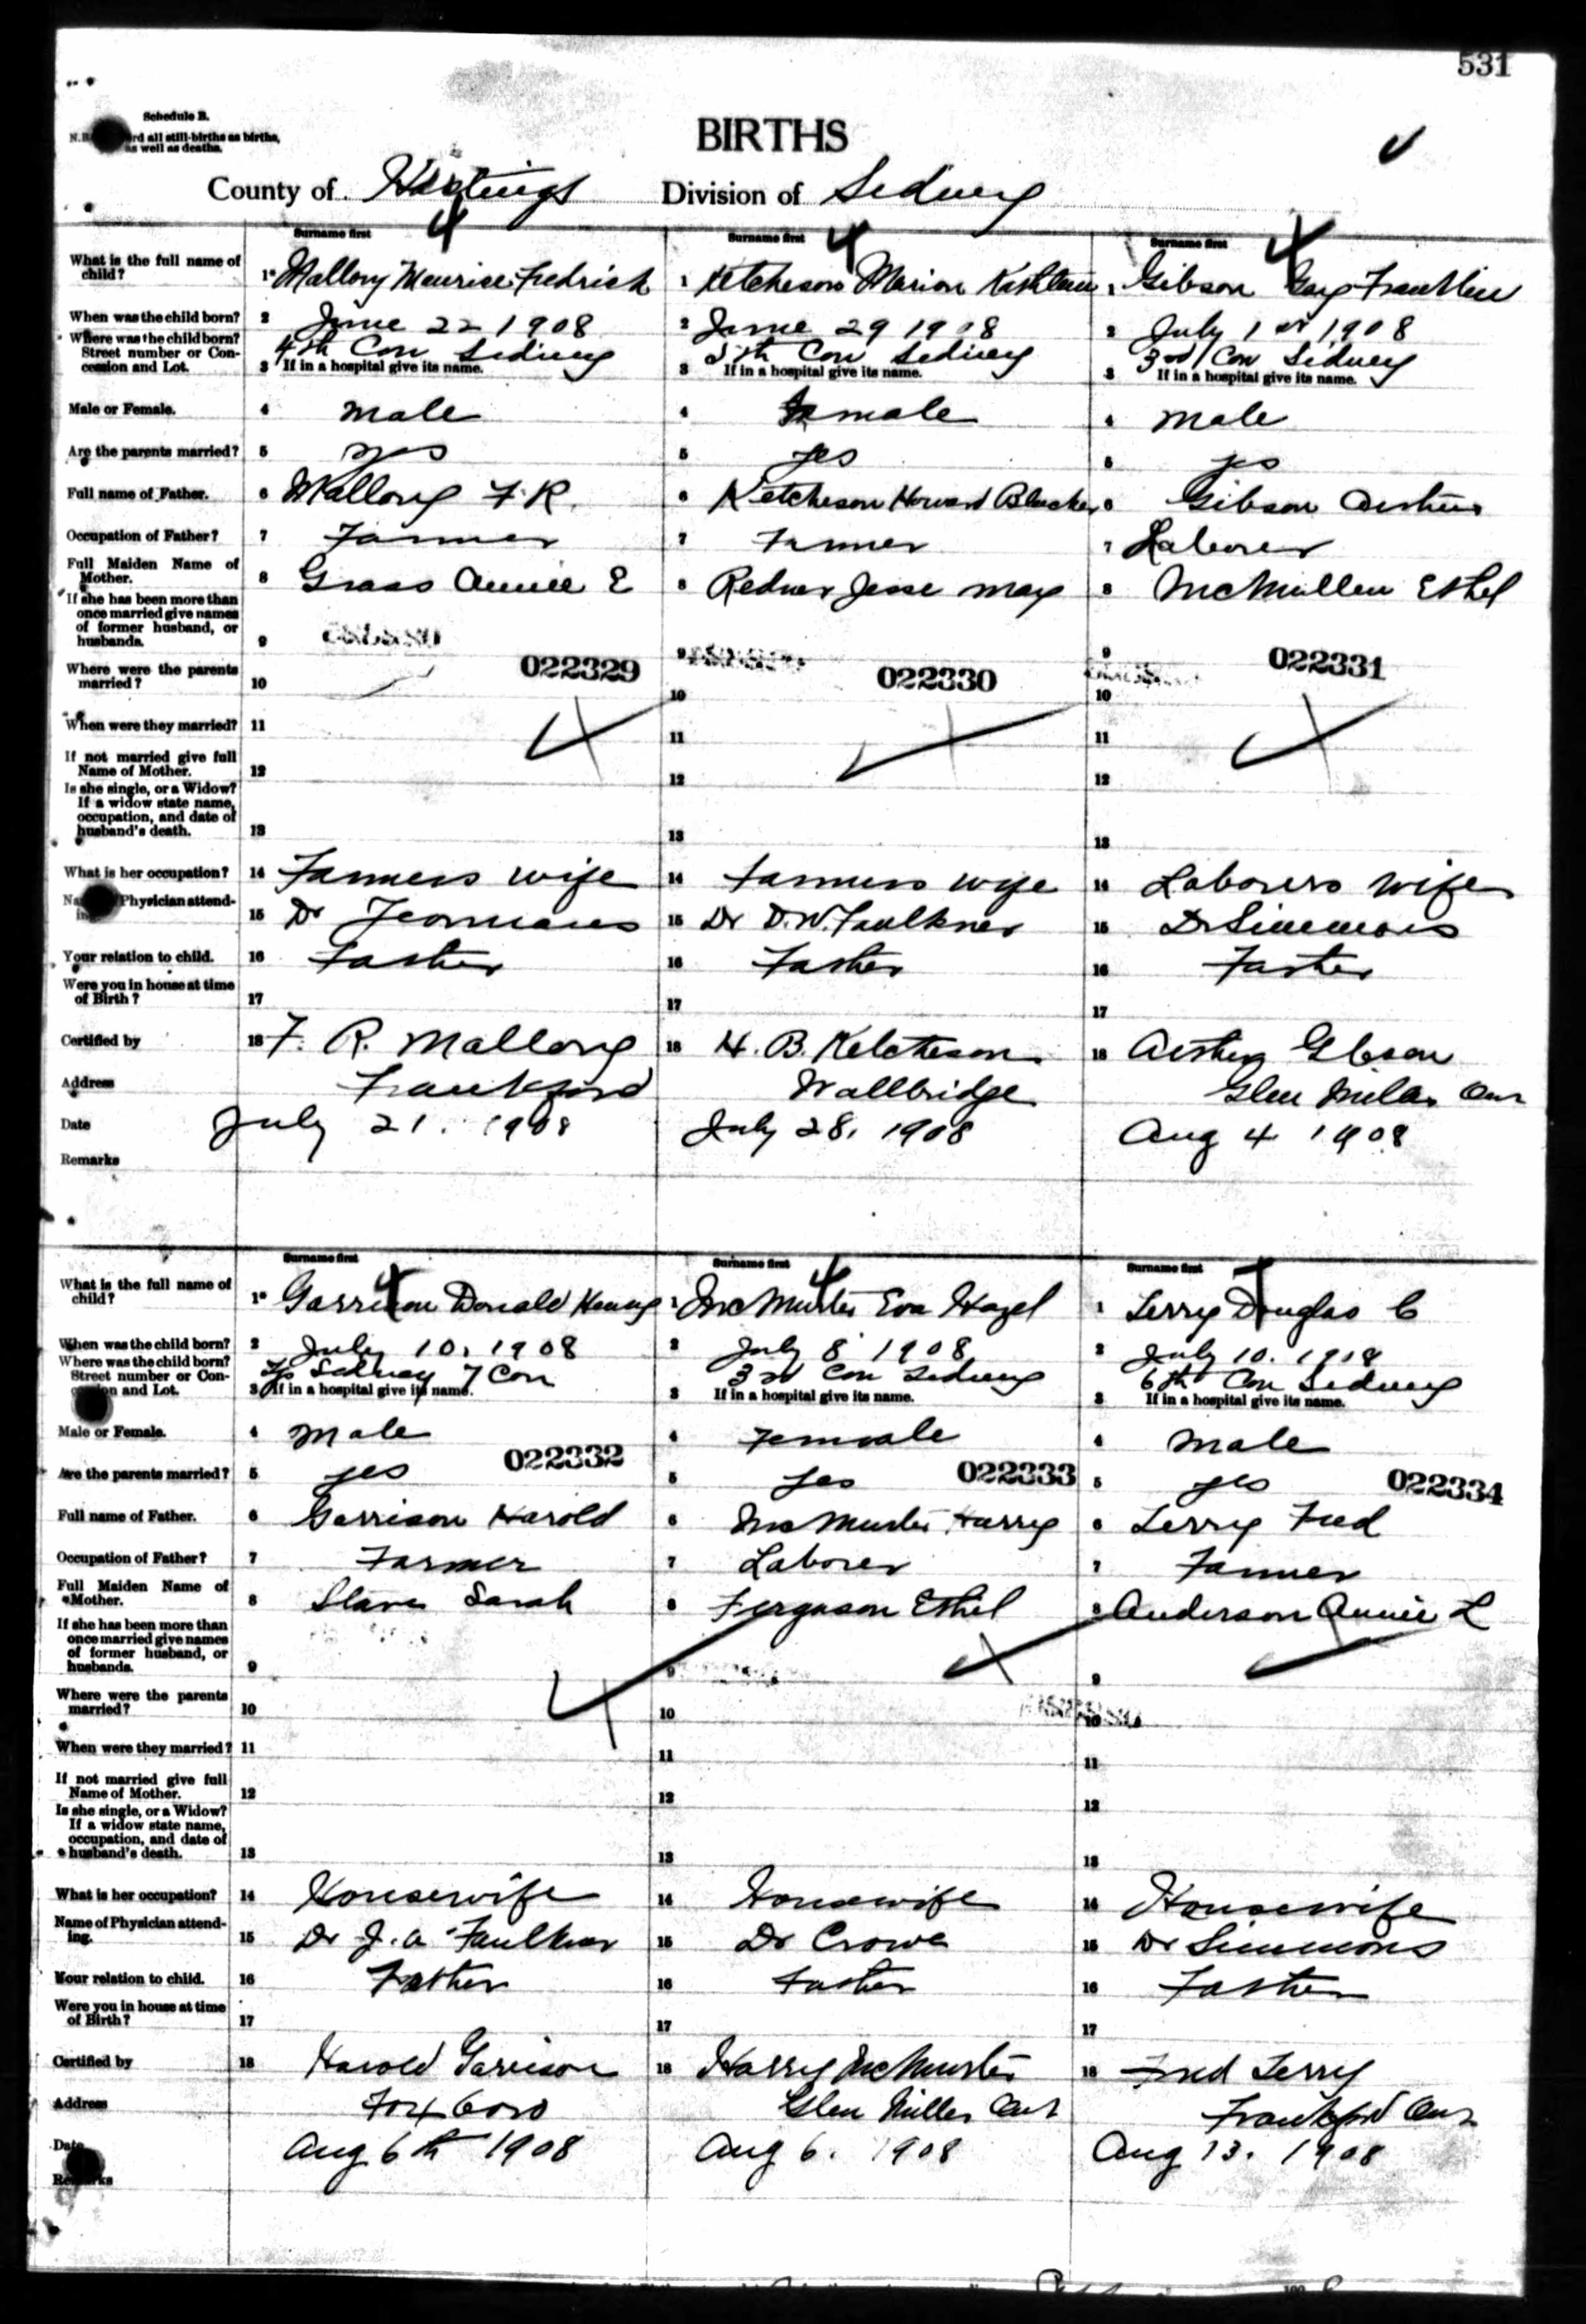 531
Schedule B.
N.B. all still-births as births,
as well as deaths.
BIRTHS
County of Hastings Division of Sidney
Surname first Surname first Surname first
What is the full name of child? 1 Mallory Maurice Fredrick 1 Ketcheson Marion Kathleen 1 Gibson Franklin
When was the child born? 2 June 22 1908 2 June 29 1908 2 July 1st 1908
Where was the child born? Street number or Concession and Lot. 3 4th Con Sidney 3 5th Con Sidney 3 3rd Con Sidney
If in a hospital give its name. If in a hospital give its name. If in a hospital give its name.
Male or Female. 4 male 4 female 4 male
Are the parents married? 5 yes 5 yes 5 yes
Full name of Father. 6 Mallory F. R. 6 Ketcheson Howard Blacker 6 Gibson Arthur
Occupation of Father? 7 Farmer 7 Farmer 7 Laborer
Full Maiden Name of Mother. 8 Grass Annie E 8 Redner Jesse May 8 McMullen Ethel
If she has been more than once married give names of former husband, or husbands. 9 9 9
022329 022330 022331
Where were the parents married? 10 10 10
When were they married? 11 11 11
If not married give full Name of Mother. 12 12 12
Is she single, or a Widow? If a widow state name, occupation, and date of husband's death. 13 13 13
What is her occupation? 14 Farmers wife 14 Farmers wife 14 Laborers wife
Physician attend- 15 Dr Yeomans 15 Dr D. W. Faulkner 15 Dr Simmons
Your relation to child. 16 Father 16 Father 16 Father
Were you in house at time of Birth? 17 17 17
Certified by 18 F. R. Mallory 18 H. B. Ketcheson 18 Arthur Gibson
Address Frankford Wallbridge Glen Miller Ont
Date July 21. 1908 July 28. 1908 Aug 4 1908
Remarks
Surname first Surname first Surname first
What is the full name of child? 1 Garrison Donald Henry 1 McMurter Eva Hazel 1 Terry Douglas C
When was the child born? 2 July 10. 1908 2 July 8 1908 2 July 10. 1908
Where was the child born? Street number or Concession and Lot. 3 Tp Sidney 7 Con 3 3rd Con Sidney 3 6th Con Sidney
If in a hospital give its name. If in a hospital give its name. If in a hospital give its name.
Male or Female. 4 Male 4 Female 4 male
022332 022333 022334
Are the parents married? 5 yes 5 yes 5 yes
Full name of Father. 6 Garrison Harold 6 McMurter Harry 6 Terry Fred
Occupation of Father? 7 Farmer 7 Laborer 7 Farmer
Full Maiden Name of Mother. 8 Sarah 8 Ferguson Ethel 8 Anderson Annie L
If she has been more than once married give names of former husband, or husbands. 9 9 9
Where were the parents married? 10 10 10
When were they married? 11 11 11
If not married give full Name of Mother. 12 12 12
Is she single, or a Widow? If a widow state name, occupation, and date of husband's death. 13 13 13
What is her occupation? 14 Housewife 14 Housewife 14 Housewife
Name of Physician attending. 15 Dr J. A Faulkner 15 Dr Crowe 15 Dr Simmons
Your relation to child. 16 Father 16 Father 16 Father
Were you in house at time of Birth? 17 17 17
Certified by 18 Harold Garrison 18 Harry McMurter 18 Fred Terry
Address Foxboro Glen Miller Ont Frankford Ont
Date Aug 6th 1908 Aug 6. 1908 Aug 13. 1908
Remarks